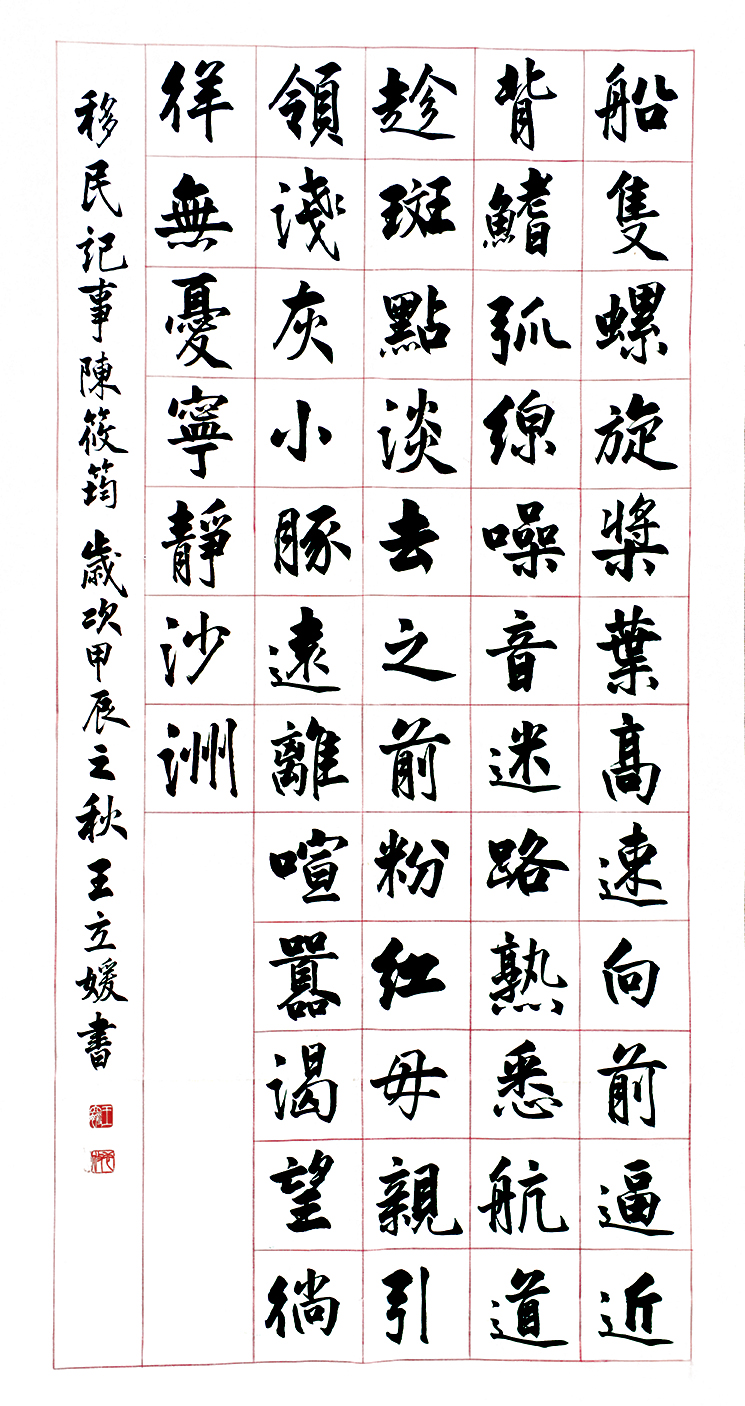 船隻螺旋槳葉高速向前逼近
背鰭弧線噪音迷路熟悉航道
趁斑點淡去之前粉紅母親引
領淺灰小豚遠離喧囂渴望徜
徉無憂寧靜沙洲
移民記事陳筱筠 歲次甲辰之秋王立媛書